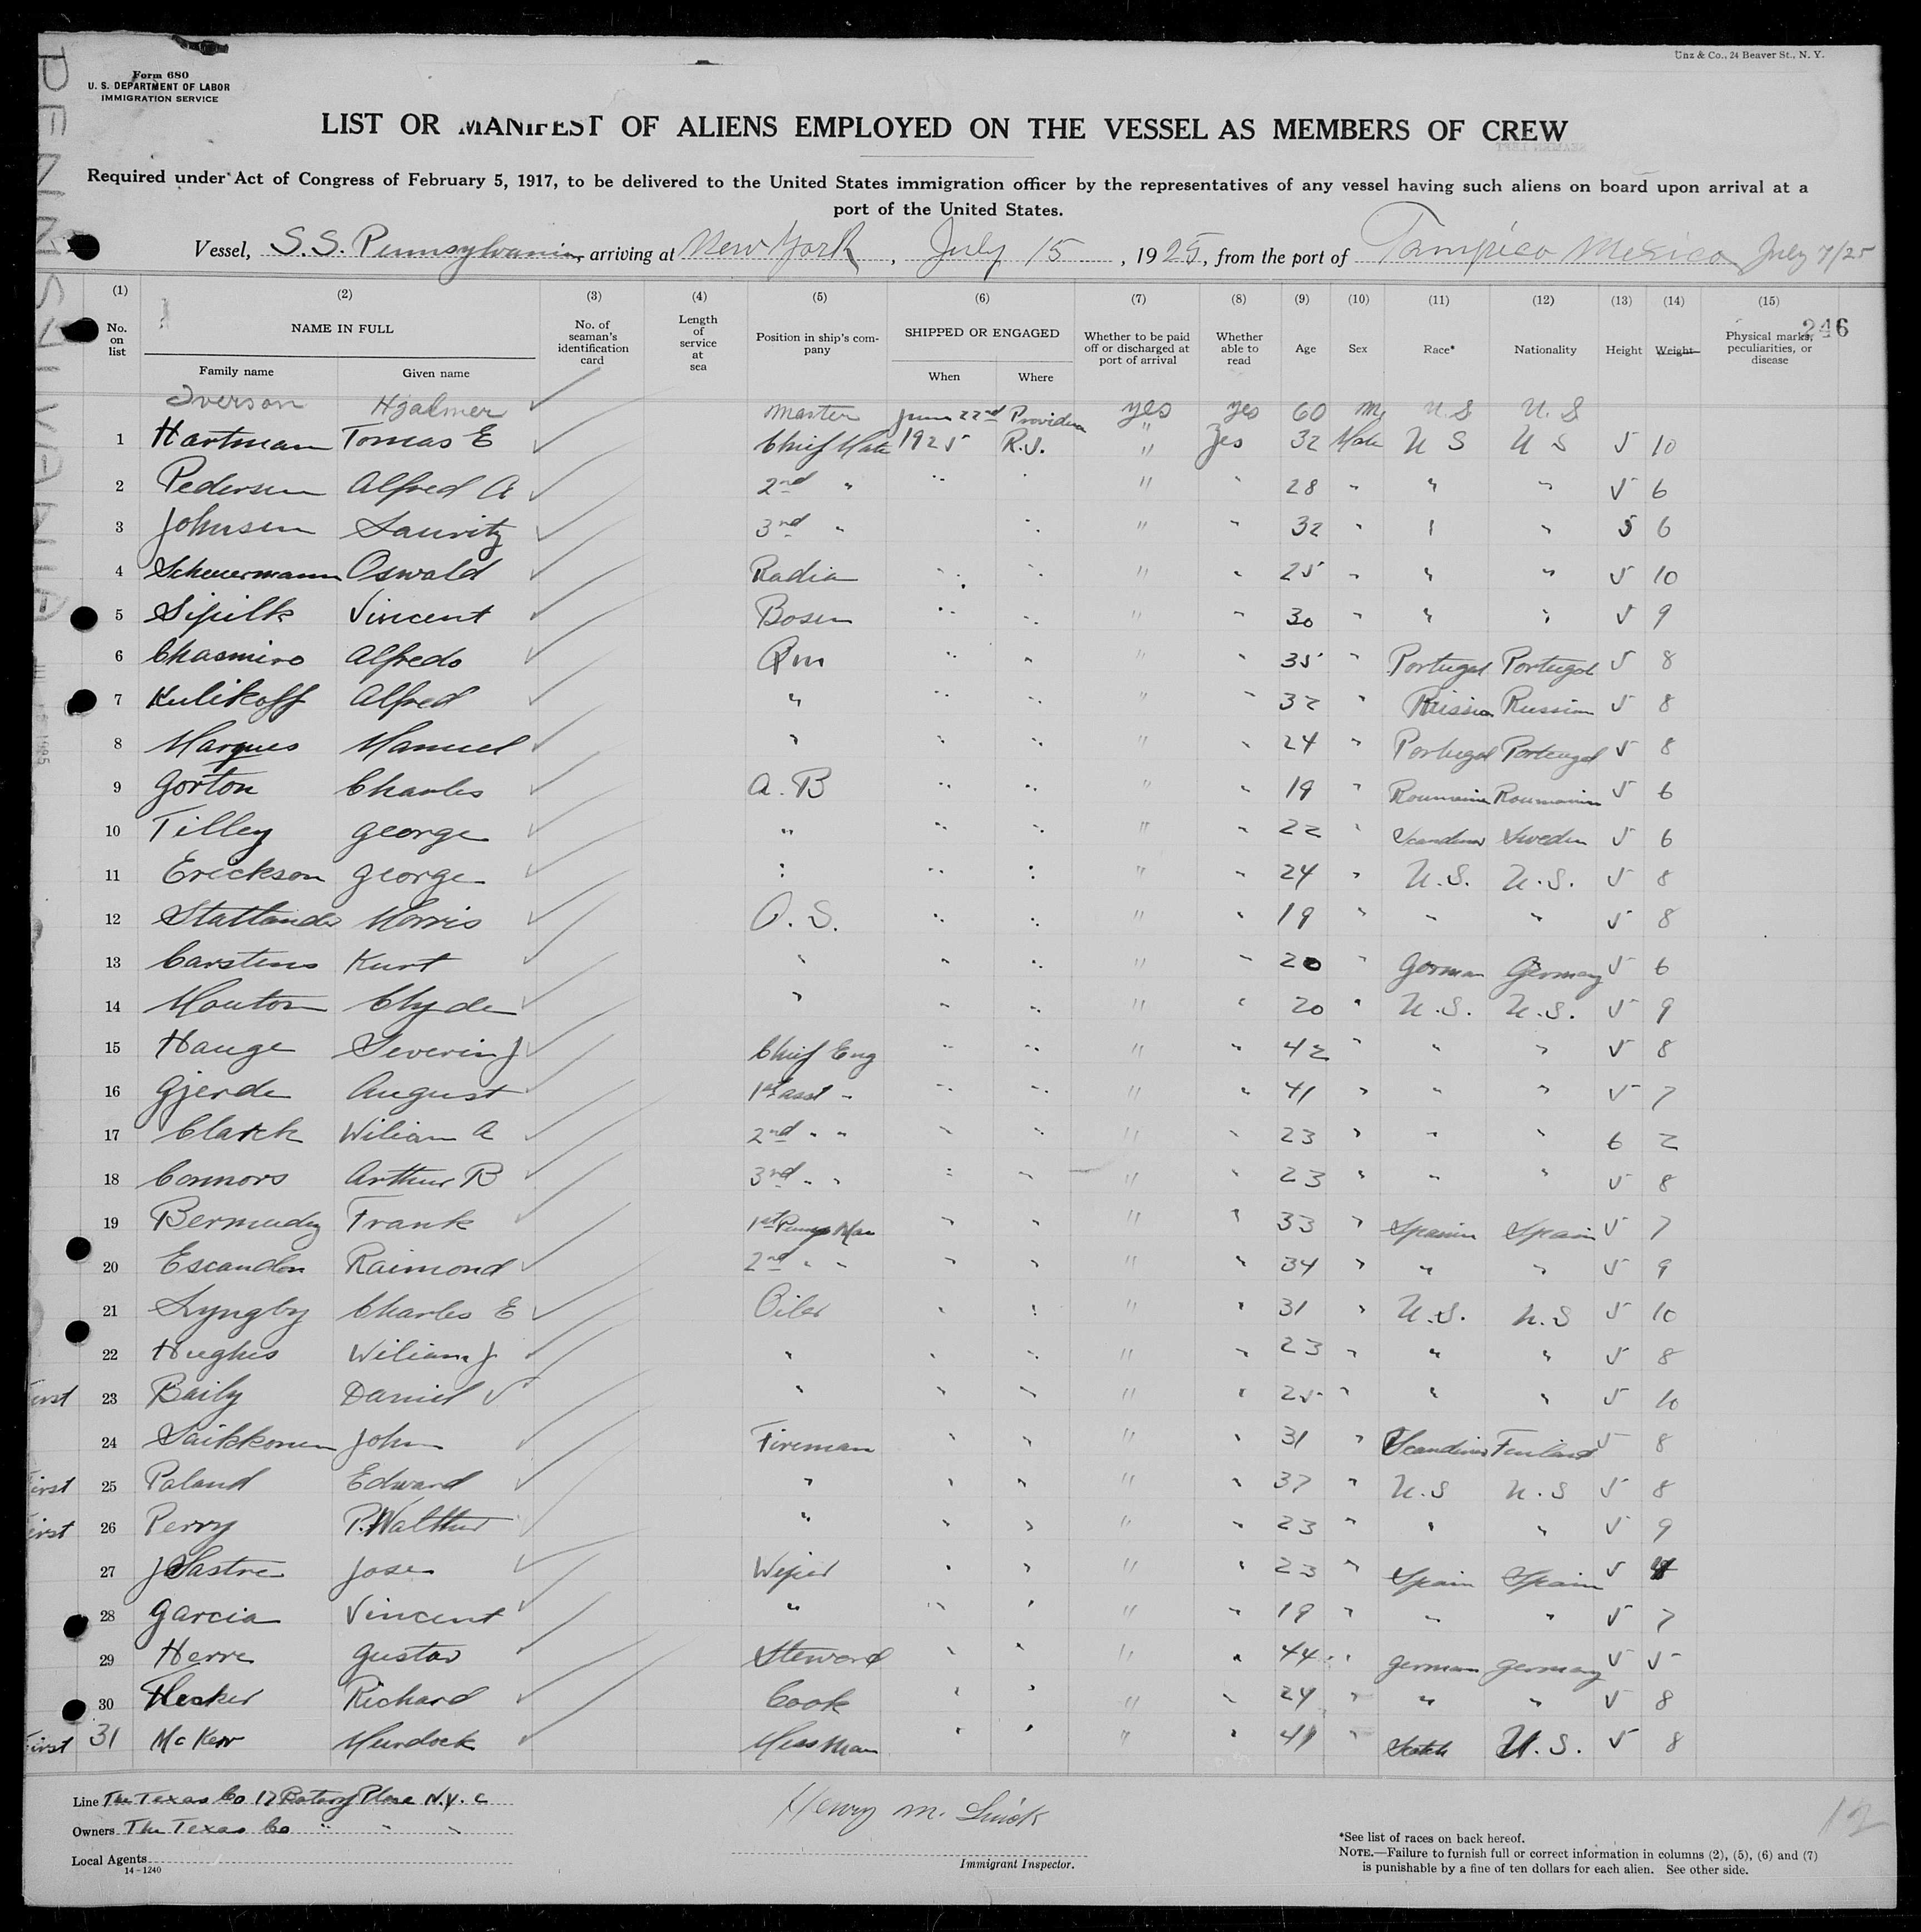 Unz & Co., 24 Beaver St., N. Y.
Form 680
U. S. DEPARTMENT OF LABOR
IMMIGRATION SERVICE
PENNSYLVANIA
LIST OR MANIFEST OF ALIENS EMPLOYED ON THE VESSEL AS MEMBERS OF CREW
Required under Act of Congress of February 5, 1917, to be delivered to the United States immigration officer by the representatives of any vessel having such aliens on board upon arrival at a
port of the United States.
Vessel, S.S. Pennsylvania, arriving at New York, July 15, 1925, from the port of Tampico Mexico July 7/25
(1) (2) (3) (4) (5) (6) (7) (8) (9) (10) (11) (12) (13) (14) (15)
No. on list NAME IN FULL Family name Given name No. of seaman's identification card Length of service at sea Position in ship's company SHIPPED OR ENGAGED When Where Whether to be paid off or discharged at port of arrival Whether able to read Age Sex Race* Nationality Height Weight Physical marks, peculiarities, or disease
246
Iverson Hjalmer Master June 22nd Providen yes yes 60 m U.S U.S
1 Hartman Tomas E Chief Mate 1925 R.I. " Yes 32 Male U S U S 5 10
2 Pedersen Alfred A 2nd " " " " " 28 " " " 5 6
3 Johnsen Lauritz 3rd " " " " 32 " " " 5 6
4 Scheuermann Oswald Radio " " " " 25 " " " 5 10
5 Sipilk Vincent Bosen " " " 30 " " " 5 9
6 Chasmiro Alfredo Qm " " " " 35 " Portugal Portugal 5 8
7 Kulikoff Alfred " " " " " 32 " Russia Russian 5 8
8 Marques Manuel " " " " " 24 " Portugal Portugal 5 8
9 Gorton Charles A. B " " " " 19 " Roumania Roumanian 5 6
10 Tilley George " " " " " 22 " Scandinav Sweden 5 6
11 Erickson George " " " " " 24 " U.S. U.S. 5 8
12 Statlander Morris O. S. " " " " 19 " " " 5 8
13 Carstens Kurt " " " " " 20 " German Germany 5 6
14 Mouton Clyde " " " " " 20 " U.S. U.S. 5 9
15 Hauge Severin J Chief Eng " " " " 42 " " " 5 8
16 Gjerde August 1st asst " " " " " 41 " " " 5 7
17 Clarck Wiliam A 2nd " " " " " " 23 " " " 6 2
18 Connors Arthur B 3rd " " " " " " 23 " " " 5 8
19 Bermudez Frank 1st Pump Man " " " " 33 " Spanin Spain 5 7
20 Escandon Raimond 2nd " " " " " " 34 " " " 5 9
21 Lyngby Charles E Oiler " " " " 31 " U.S. U.S 5 10
22 Hughes Wiliam J " " " " " 23 " " " 5 8
First 23 Baily Daniel V " " " " " 25 " " " 5 10
24 Saikkonen John Fireman " " " " 31 " Scandinav Finland 5 8
First 25 Poland Edward " " " " " 37 " U.S U.S 5 8
First 26 Perry P. Walther " " " " " 23 " " " 5 9
27 Sastre Jose Wiper " " " " 23 " Spain Spain 5 4
28 Garcia Vincent " " " " " 19 " " " 5 7
29 Herre Gustav Steward " " " " 44 " German Germany 5 5
30 Hecker Richard Cook " " " " 24 " " " 5 8
First 31 McKerr Murdock Mess Man " " " " 41 " Scotch U.S. 5 8
Line The Texas Co 17 Batory Place N.Y. C
Owners The Texas Co " " "
Local Agents
14-1240
Henry M.
Immigrant Inspector.
12
*See list of races on back hereof.
NOTE.—Failure to furnish full or correct information in columns (2), (5), (6) and (7)
is punishable by a fine of ten dollars for each alien. See other side.